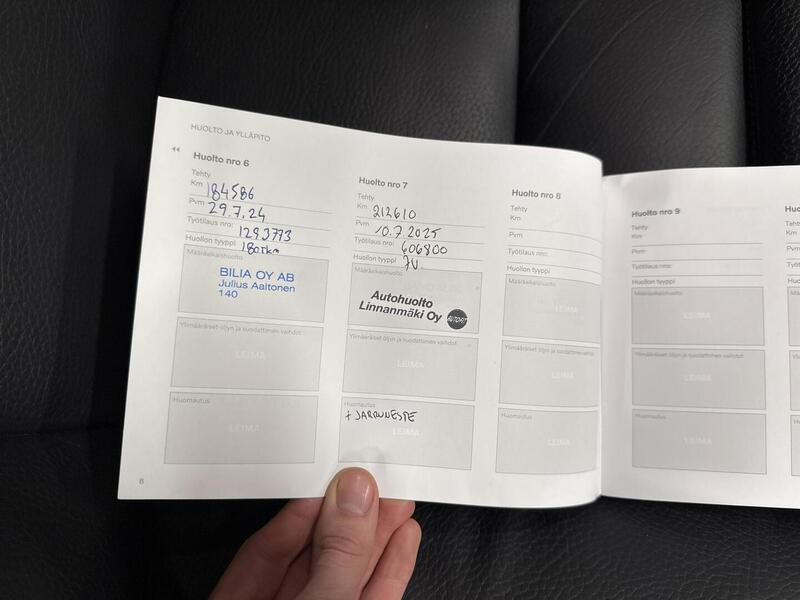 HUOLTO JA YLLÄPITO
Huolto nro 6
Tehty
Km 184586
Pvm 29.7.24
Työtilaus nro: 1293773
Huollon tyyppi 180tkm
Määräaikaishuolto
BILIA OY AB
Julius Aaltonen
140
Ylimääräiset öljyn ja suodattimen vaihdot
LEIMA
Huomautus
LEIMA
8
Huolto nro 7
Tehty
Km 212610
Pvm 10.7.2025
Työtilaus nro: 606800
Huollon tyyppi JV.
Määräaikaishuolto
Autohuolto
Linnanmäki Oy
AUTOFIT
Ylimääräiset öljyn ja suodattimen vaihdot
LEIMA
Huomautus
+ JARRUNESTE
LEIMA
Huolto nro 8
Tehty
Km
Pvm
Työtilaus nro:
Huollon tyyppi
Määräaikaishuolto
LEIMA
Ylimääräiset öljyn ja suodattimen vaihdot
LEIMA
Huomautus
LEIMA
Huolto nro 9
Tehty
Km
Pvm
Työtilaus nro:
Huollon tyyppi
Määräaikaishuolto
LEIMA
Ylimääräiset öljyn ja suodattimen vaihdot
LEIMA
Huomautus
LEIMA
Huo
Tehty
Km
Pvm
Työti
Huol
Mää
Ylim
Huo